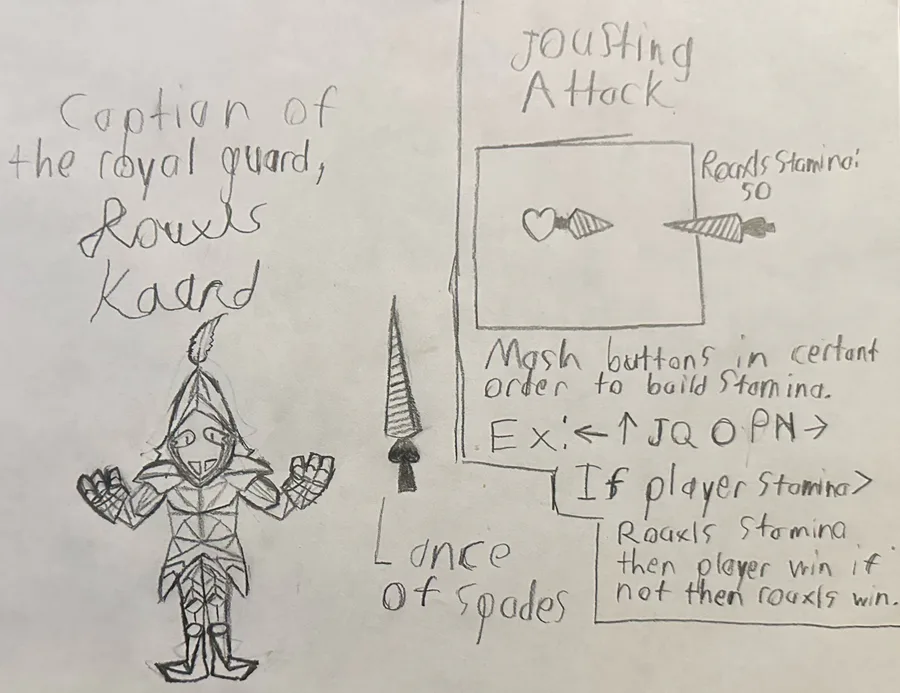 Caption of
the royal guard,
Rouxls
Kaard
Lance
of Spades
Jousting
Attack
Rouxls Stamina:
50
Mash buttons in certant
order to build Stamina.
Ex: ← ↑ J Q O P N →
If player Stamina >
Rouxls Stamina
then player win if
not then rouxls win.